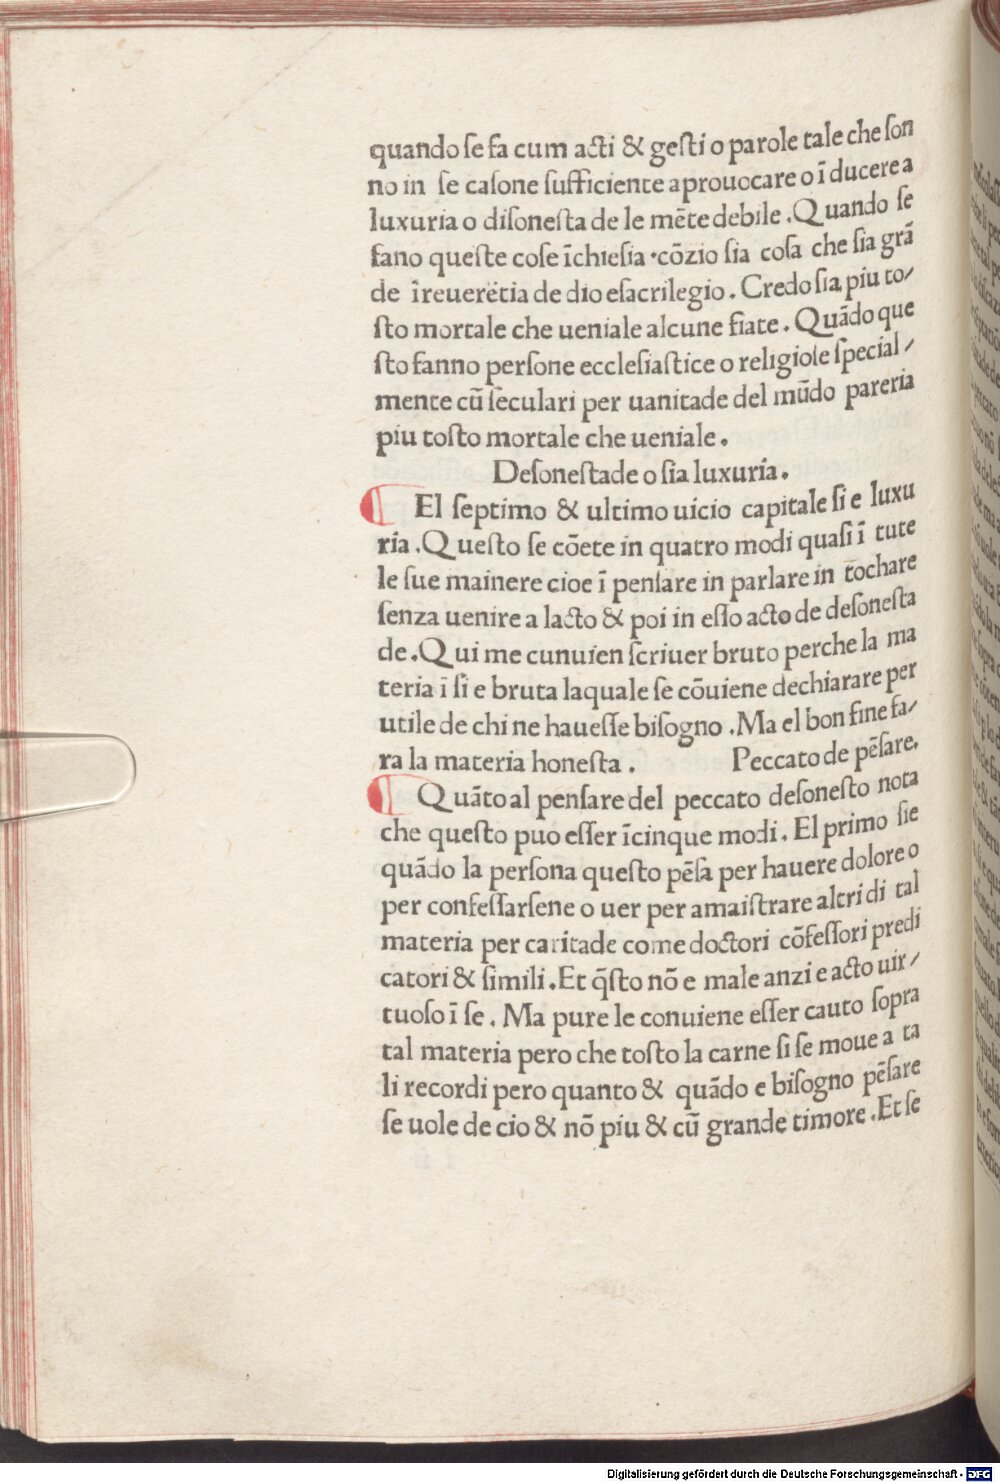 quando ſe fa cum acti & geſti o parole tale che ſon
no in ſe caſone ſufficiente a prouocare o ī ducere a
luxuria o diſoneſta de le mēte debile . Quando ſe
fano queſte coſe īchieſia · cōzio ſia coſa che ſia grā
de īreuerētia de dio e ſacrilegio . Credo ſia piu to⸗
ſto mortale che ueniale alcune fiate . Quādo que
ſto fanno perſone eccleſiaſtice o religioſe ſpecial⸗
mente cū ſeculari per uanitade del mūdo pareria
piu toſto mortale che ueniale .
Deſoneſtade o ſia luxuria .
El ſeptimo & ultimo uicio capitale ſi e luxu
ria . Queſto ſe cōete in quatro modi quaſi ī tute
le ſue mainere cioe ī penſare in parlare in tochare
ſenza uenire a lacto & poi in eſſo acto de deſoneſta
de . Qui me cunuien ſcriuer bruto perche la ma
teria ī ſi e bruta laquale ſe cōuiene dechiarare per
utile de chi ne haueſſe biſogno . Ma el bon fine fa⸗
ra la materia honeſta . Peccato de pēſare.
Quāto al penſare del peccato deſoneſto nota
che queſto puo eſſer īcinque modi . El primo ſie
quādo la perſona queſto pēſa per hauere dolore o
per confeſſarſene o uer per amaiſtrare altri di tal
materia per caritade come doctori cōfeſſori predi
catori & ſimili . Et q̄ſto nō e male anzi e acto uir⸗
tuoſo ī ſe . Ma pure le conuiene eſſer cauto ſopra
tal materia pero che toſto la carne ſi ſe moue a ta
li recordi pero quanto & quādo e biſogno pēſare
ſe uole de cio & nō piu & cū grande timore . Et ſe
Digitalisierung gefördert durch die Deutsche Forschungsgemeinschaft - DFG